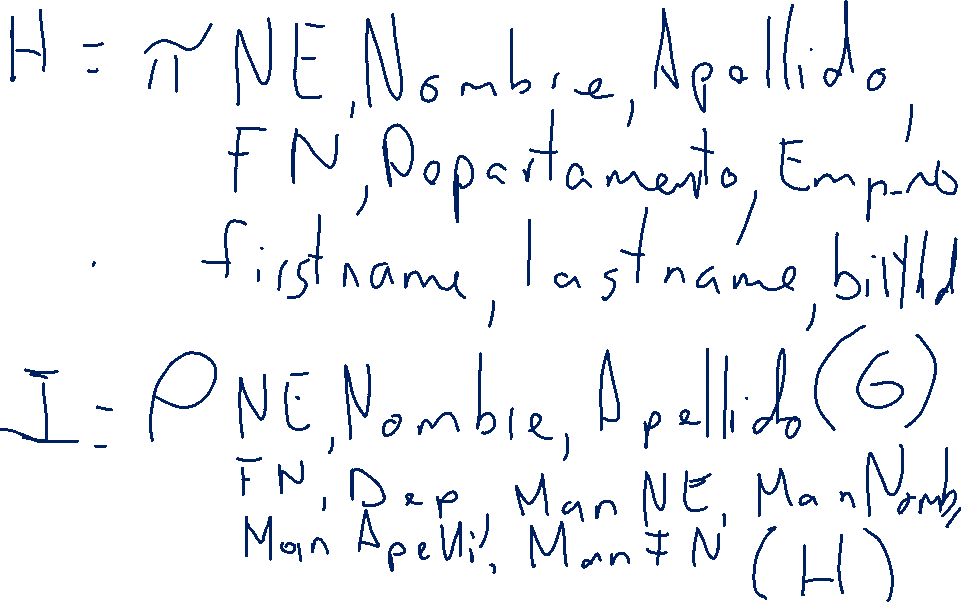 H = π NE, Nombre, Apellido,
FN, Departamento, Emp_no
firstname, lastname,
I = ρ NE, Nombre, Apellido (G)
FN, Dep, Man NE, Man Nomb,
Man Apelli, Man FN (H)